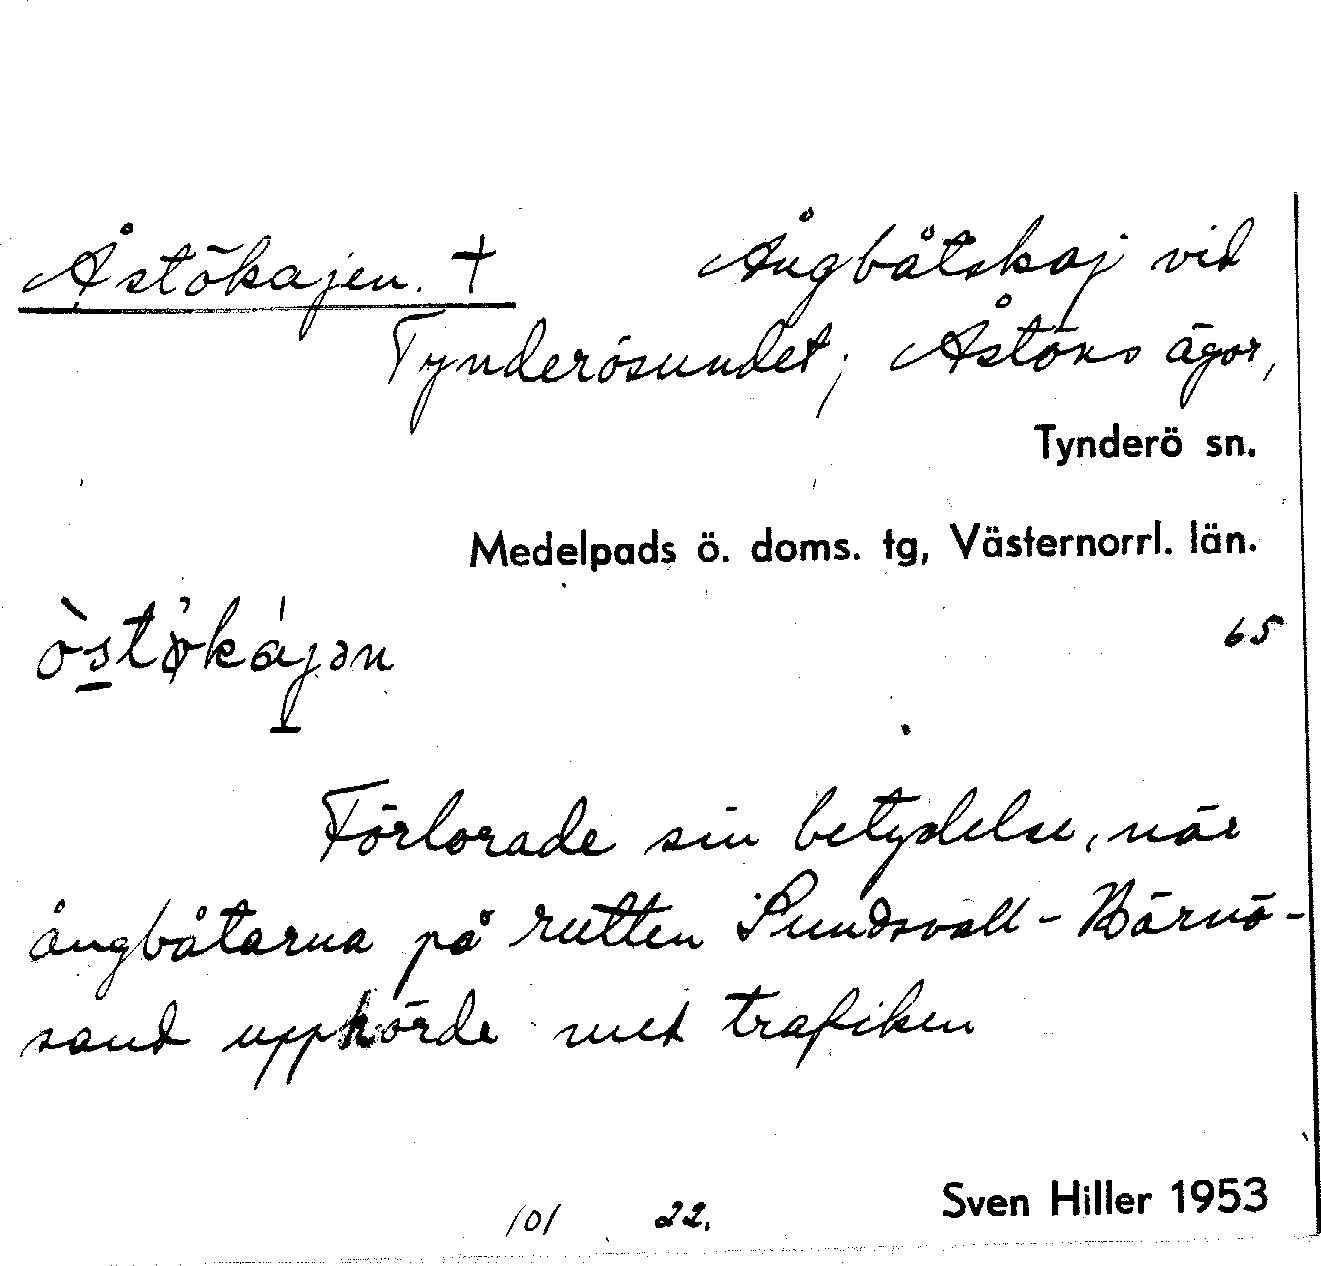 Åstökajen. † Ångbåtskaj vid
Tynderösundet; Åstöns ägor,
Tynderö sn.
Medelpads ö. doms. tg, Västernorrl. län.
65
Förlorade sin betydelse, när
ångbåtarna på rutten Sundsvall-Härnö-
sand upphörde med trafiken
Sven Hiller 1953
101 22.